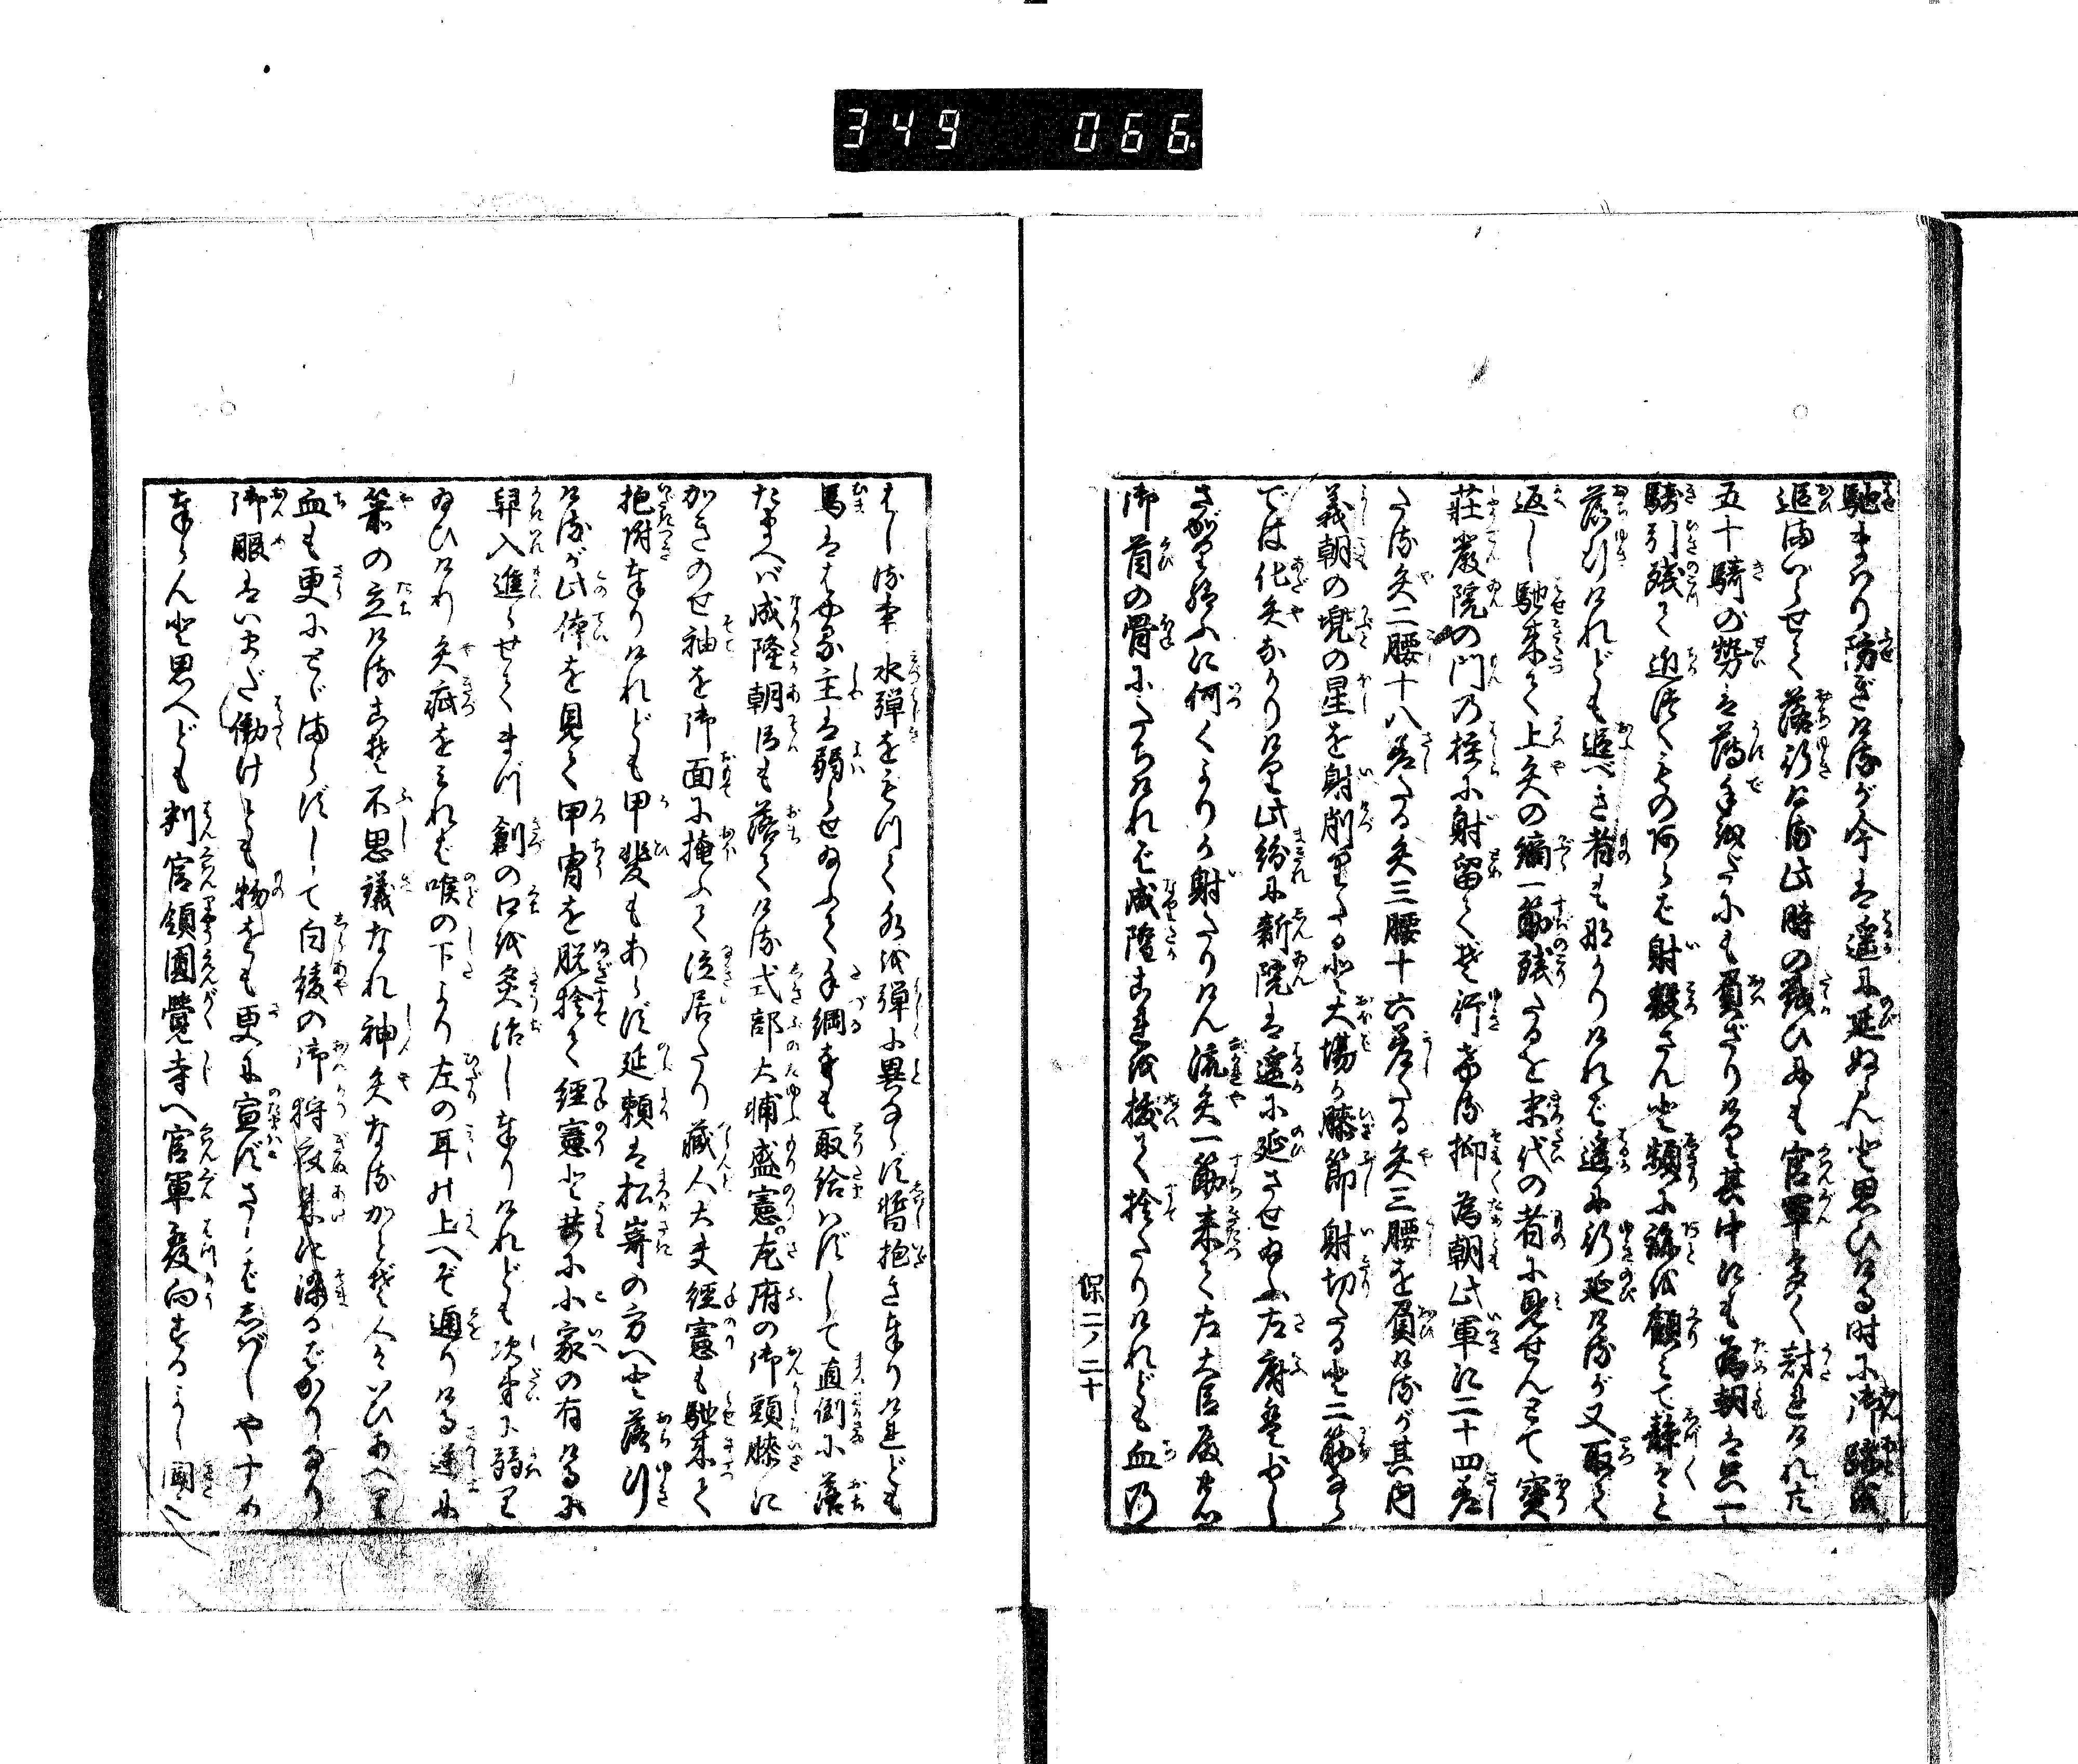 349 066
馳まはり防ぎける が今は遥に延ぬらんと思ひける時に御跡を
追まいらせて落行ける此時の戦ひにも官軍多く討れけれた
五十騎の勢は薄手 だにも負ざりけり其中にも為朝は只一
騎引残て近づくもの あらば射殺さんと頻に跡を顧みて静々と
落行けれども追べき者も那かりければ遥に行延けるが又取て
返し馳来て上矢の鏑一筋残たるを末代の者に見せんとて宝
荘厳院の門乃柱に射留てぞ行ける抑為朝此軍に二十四差
たる矢二腰十八差たる矢三腰十六差たる矢三腰を負けるが其内
義朝の兜の星を射削りたると大場が膝節射切たると二筋なら
では化矢なかりけり此紛に新院は遥に延させ給ふ左府も少し
さがり給ふに何くよりか射たりけん流矢一筋来て左大臣殿の
御首の骨にたちければ成隆是を抜て捨たりけれども血乃
保二ノ二十
はしる事水弾をもつて水を弾に異ならず 抱き奉りけれども
馬ははやる主は弱らせ給ふて手綱をも取給はずして直倒に落
たまへば成隆朝臣も落てける式部大輔盛憲左府の御頭膝に
かきのせ袖を御面に掩ふて泣居たり蔵人大夫経憲も馳来て
抱附奉りけれども甲斐もあらず延頼は松嵜の方へと落行
けるが此体を見て甲冑を脱捨て経憲と共に小家の有けるに
舁入進らせてまづ創の口を灸治し奉りけれども次第に弱り
給ひけり矢疵をみれば喉の下より左の耳の上へぞ通りける逆に
箭の立ける こそ不思議なれ神矢なるかとぞ人々いひあへり
血も更にとどまらずして白綾の御狩衣朱に染るばかりなり
御眼はいまだ働けとも物をも更に宣ずさらばしばしやすめ
奉らんと思へども判官領圓覺寺へ官軍發向するよし聞へ